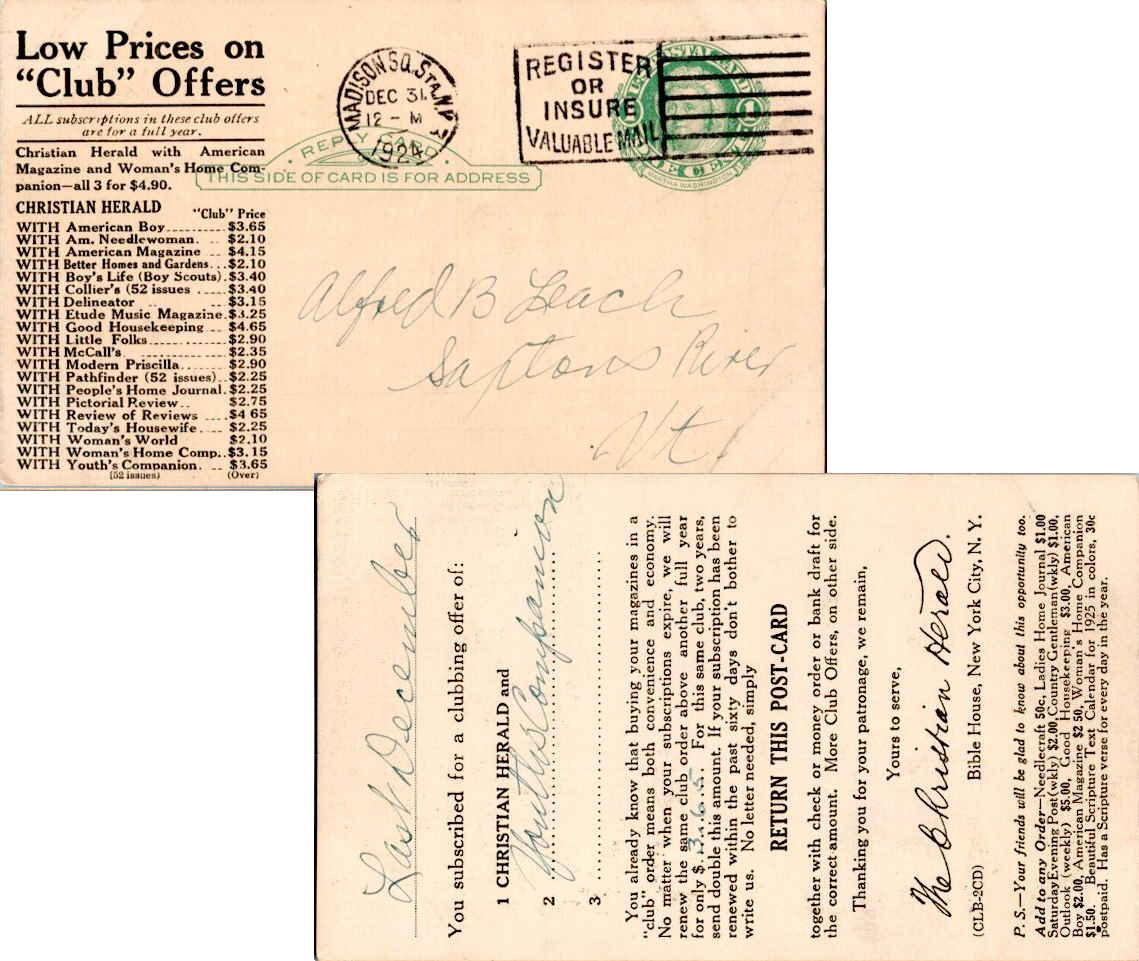 Low Prices on
“Club” Offers
ALL subscriptions in these club offers
are for a full year.
Christian Herald with American
Magazine and Woman's Home Com-
panion—all 3 for $4.90.
CHRISTIAN HERALD "Club" Price
WITH American Boy $3.65
WITH Am. Needlewoman. $2.10
WITH American Magazine $4.15
WITH Better Homes and Gardens $2.10
WITH Boy's Life (Boy Scouts) $3.40
WITH Collier's (52 issues $3.40
WITH Delineator $3.15
WITH Etude Music Magazine $3.25
WITH Good Housekeeping $4.65
WITH Little Folks $2.90
WITH McCall's $2.35
WITH Modern Priscilla $2.90
WITH Pathfinder (52 issues) $2.25
WITH People's Home Journal $2.25
WITH Pictorial Review $2.75
WITH Review of Reviews $4 65
WITH Today's Housewife $2.25
WITH Woman's World $2.10
WITH Woman's Home Comp. $3.15
WITH Youth's Companion. $3.65
(52 issues) (Over)
MADISON SQ. STA. N.Y.
DEC 31
12 - M
1924
REGISTER
OR
INSURE
VALUABLE MAIL
REPLY CARD.
THIS SIDE OF CARD IS FOR ADDRESS
MARTHA WASHINGTON
Alfred B Leach
Saxtons River
Vt
Last December
You subscribed for a clubbing offer of:
1 CHRISTIAN HERALD and
2 Youths Companion
3
You already know that buying your magazines in a
"club" order means both convenience and economy.
No matter when your subscriptions expire, we will
renew the same club order above another full year
for only $ 3.65. For this same club, two years,
send double this amount. If your subscription has been
renewed within the past sixty days don't bother to
write us. No letter needed, simply
RETURN THIS POST-CARD
together with check or money order or bank draft for
the correct amount. More Club Offers, on other side.
Thanking you for your patronage, we remain,
Yours to serve,
The Christian Herald.
(CLB-2CD) Bible House, New York City, N. Y.
P. S.—Your friends will be glad to know about this opportunity too.
Add to any Order—Needlecraft 50c, Ladies Home Journal $1.00
Saturday Evening Post (wkly) $2.00 Country Gentleman (wkly) $1.00,
Outlook (weekly) $5.00, Good Housekeeping $3.00, American
Boy $2.00, American Magazine $2 50, Woman's Home Companion
$1.50. Beautiful Scripture Text Calendar for 1925 in colors, 30c
postpaid. Has a Scripture verse for every day in the year.